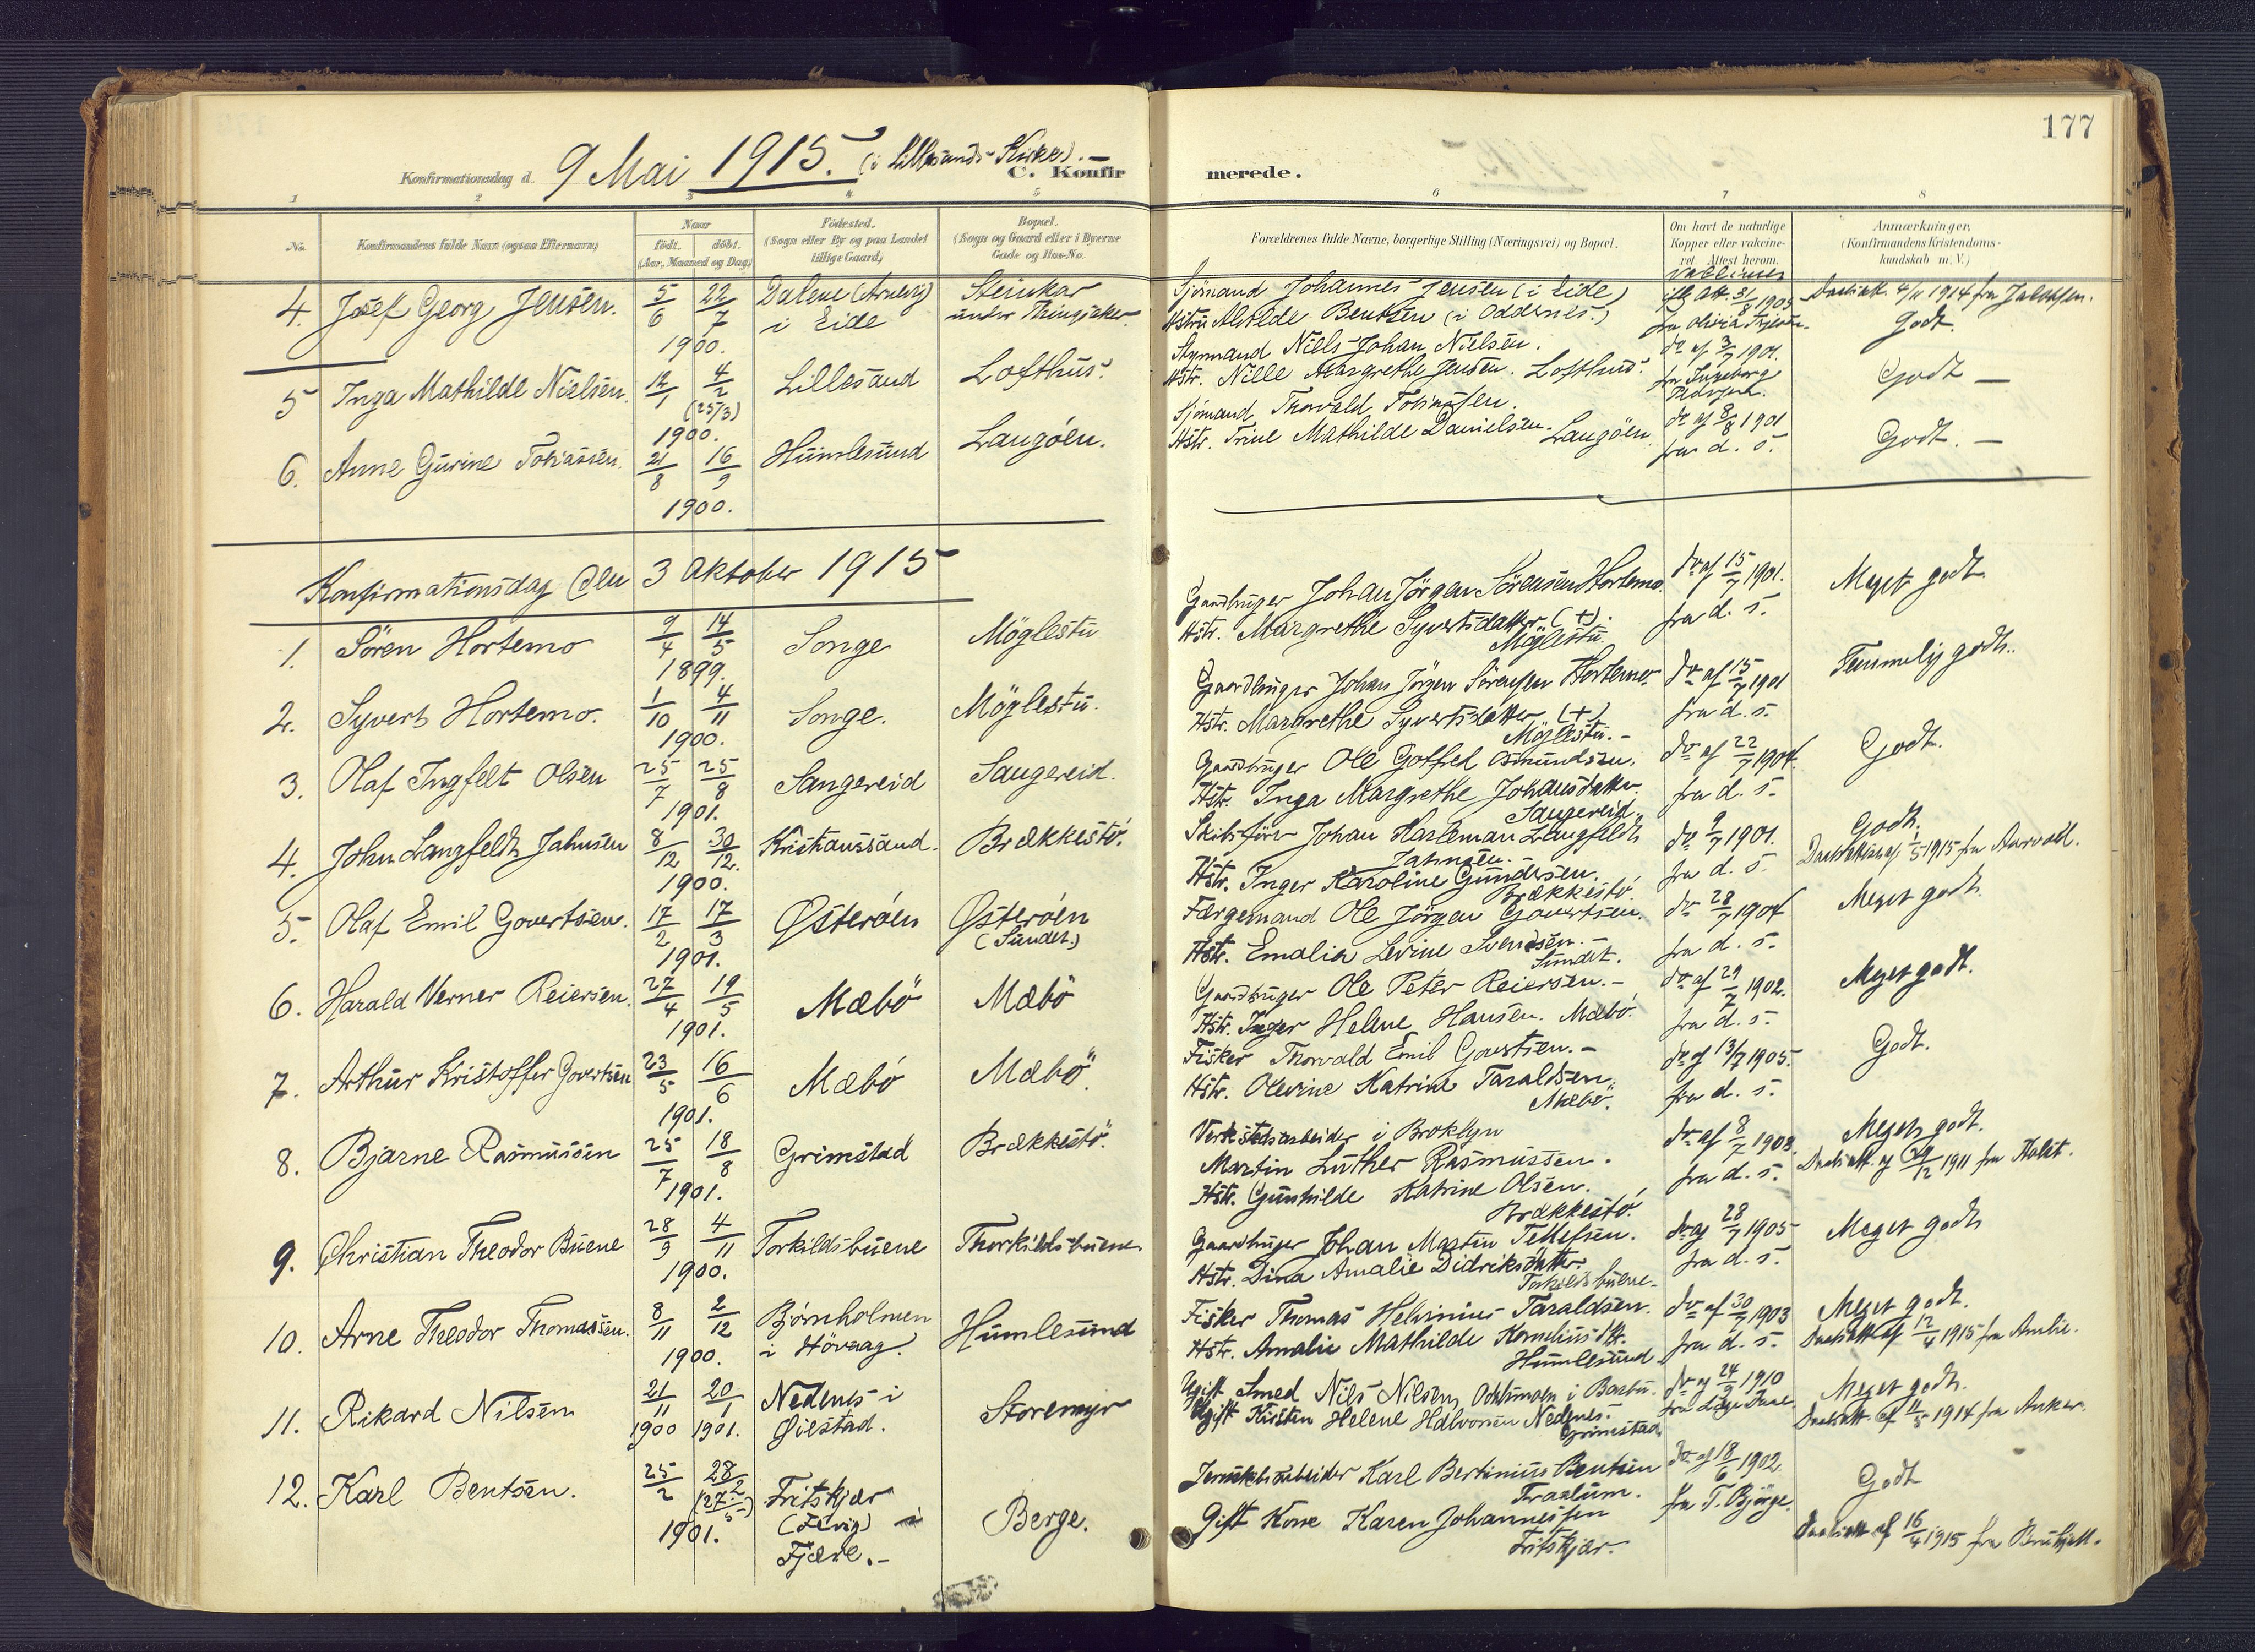 177
Konfirmationsdag d. 9 Mai 1915. (i Lillesands Kirke). —
C. Konfirmerede.
1 2 3 4 5 6 7 8
No.
Konfirmandens fulde Navn (ogsaa Efternavn)
Naar
født. døbt.
(Aar, Maaned og Dag)
Fødested.
(Sogn eller By og paa Landet
tillige Gaard)
Bopæl.
(Sogn og Gaard eller i Byerne
Gade og Hus-No.
Forældrenes fulde Navne, borgerlige Stilling (Næringsvei) og Bopæl.
Om havt de naturlige
Kopper eller vakcine-
ret. Attest herom.
Anmærkninger,
(Konfirmandens Kristendoms-
kundskab m. V.)
4. Josef Georg Jensen. 5/6 22/7 1900.
Dalene (Arnevig)
i Eide
Steinkar
under
Sjömand Johannes Jensen (i Eide)
Hstru Alvilde Bentsen (i Oddernes.)
ifl. Att. 31/8 1903
fra Olivia
Daabsatt. 4/11 1914 fra Jakobsen.
Godt.
5 Inga Mathilde Nielsen. 12/1 4/2 (25/3) 1900.
Lillesand
Lofthus.
Styrmand Niels Johan Nielsen.
Hstr. Nille Margrethe Jensen. Lofthus.
do af 3/7 1901.
fra Ingeborg
Pedersen.
Godt —
6. Anne Gurine Tobiassen. 21/8 16/9 1900.
Humlesund
Langöen.
Sjömand Thorvald Tobiassen.
Hstr. Trine Mathilde Danielsen. Langöen.
do af 8/8 1901
fra d. s.
Godt. —
Konfirmationsdag den 3 Oktober 1915
1. Sören Hortemo 9/4 14/5 1899.
Songe
Möglestu
Gaardbruger Johan Jörgen Sörensen Hortemo.
Hstr. Margrethe Syvertsdatter (+).
Möglestu.
do af 15/7 1901.
fra d. s.
Meget godt.
2. Syvert Hortemo. 1/10 4/11 1900.
Songe.
Möglestu.
Gaardbruger Johan Jörgen Sörensen Hortemo
Hstr. Margrethe Syvertsdatter (+)
Möglestu. -
do af 15/7 1901
fra d. s.
Temmelig godt.
3. Olaf Ingfelt Olsen 25/7 25/8 1901.
Sangereid
Saugereid.
Gaardbruger Ole Gotfred Osmundsen.
Hstr. Inga Margrethe Johansdatter.
Saugereid.
do af 22/7 1904.
fra d. s.
Godt.
4. John Langfeldt Jahnsen 8/12 30/12 1900.
Kristianssand.
Brækkestö.
Skibsförer Johan Harleman Langfeldt
Jahnsen.
Hstr. Inger Karoline Gundersen.
Brækkestö.
do 9/7 1901.
fra d. s.
Godt.
1915 fra
5. Olaf Emil Govertsen. 17/2 17/3 1901.
Østeröen
Østeröen
(Sundet.)
Færgemand Ole Jörgen Govertsen.
Hstr. Emalia Levine Svendsen. -
Sundet.
do 28/7 1904
fra d. s.
Meget godt.
6. Harald Verner Reiersen. 27/4 19/5 1901.
Mæbö
Mæbö
Gaardbruger Ole Peter Reiersen. -
Hstr. Inger Helene Hansen. Mæbö.
do af 29/7 1902.
fra d. s.
Meget godt.
7. Arthur Kristoffer Govertsen 23/5 16/6 1901.
Mæbö
Mæbö.
Fisker Thorvald Emil Govertsen. -
Hstr. Olevine Katrine Taraldsen.
Mæbö.
do af 13/7 1905.
fra d. s.
Godt.
8. Bjarne Rasmussen 25/7 18/8 1901.
Grimstad
Brækkestö.
Verkstedsarbeider i Broklyn
Martin Luther Rasmussen.
Hstr. Gunhilde Katrine Olsen.
Brækkestö.
do af 8/7 1903.
fra d. s.
Meget godt.
Daabsatt. af 29/12 1911 fra Holst.
9. Christian Theodor Buene 28/9 4/11 1900.
Torkildsbuene
Thorkildsbuene.
Gaardbruger Johan Martin Tellefsen.
Hstr. Dina Amalie Didriksdatter.
Torkildsbuene.
do af 28/7 1905
fra d. s.
Meget godt
10. Arne Theodor Thomassen. 8/11 2/12 1900.
Bjørnholmen
i Hövaag.
Humlesund
Fisker Thomas Helminius Taraldsen.
Hstr. Amalie Mathilde Kornelius dtr.
Humlesund
do af 30/7 1903
fra d. s.
Meget godt.
Daabsatt af 12/4 1915 fra
11. Rikard Nilsen 21/11 1900 20/1 1901.
Nedenes i
Øiestad.
Storemyr
Ugift Smed Nils Nilsen, i Barbu.
Ugift Kirsten Helene Halvorsen Nedenes.
Grimstad.
do af 24/9 1910
Meget godt.
Daabsatt. af 11/5 1914 fra Anker.
12. Karl Bentsen. 25/2 28/2 (27/5) 1901.
Fritskjær
(Fevig) i
Fjære. -
Berge.
Karl Bertinius Bentsen
Gift Kone Karen Johannessen
Fritskjær.
do af 18/6 1902.
fra T. Bjørge.
Godt
Daabsatt af 16/4 1915 fra